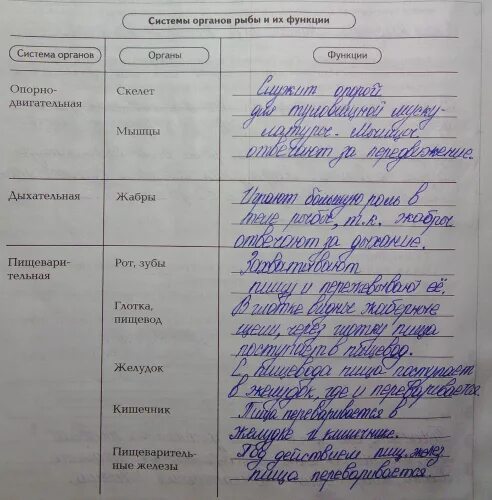 Системы органов рыбы и их функции
Система органов Органы Функции
Опорно-двигательная
Скелет
Мышцы
Служит опорой
для туловищной муску-
латуры. Мышцы
отвечают за передвижение.
Дыхательная
Жабры
Играют большую роль в
теле рыбы, т.к. жабры
отвечают за дыхание.
Пищевари-
тельная
Рот, зубы
Захватывают
пищу и пережёвывают её.
Глотка,
пищевод
В глотке видны жаберные
щели, через глотку пища
поступает в пищевод.
Желудок
С пищевода пища поступает
в желудок, где и переваривается.
Кишечник
Пища переваривается в
желудке и кишечнике.
Пищеваритель-
ные железы
Под действием пищ. желез
пища переваривается.